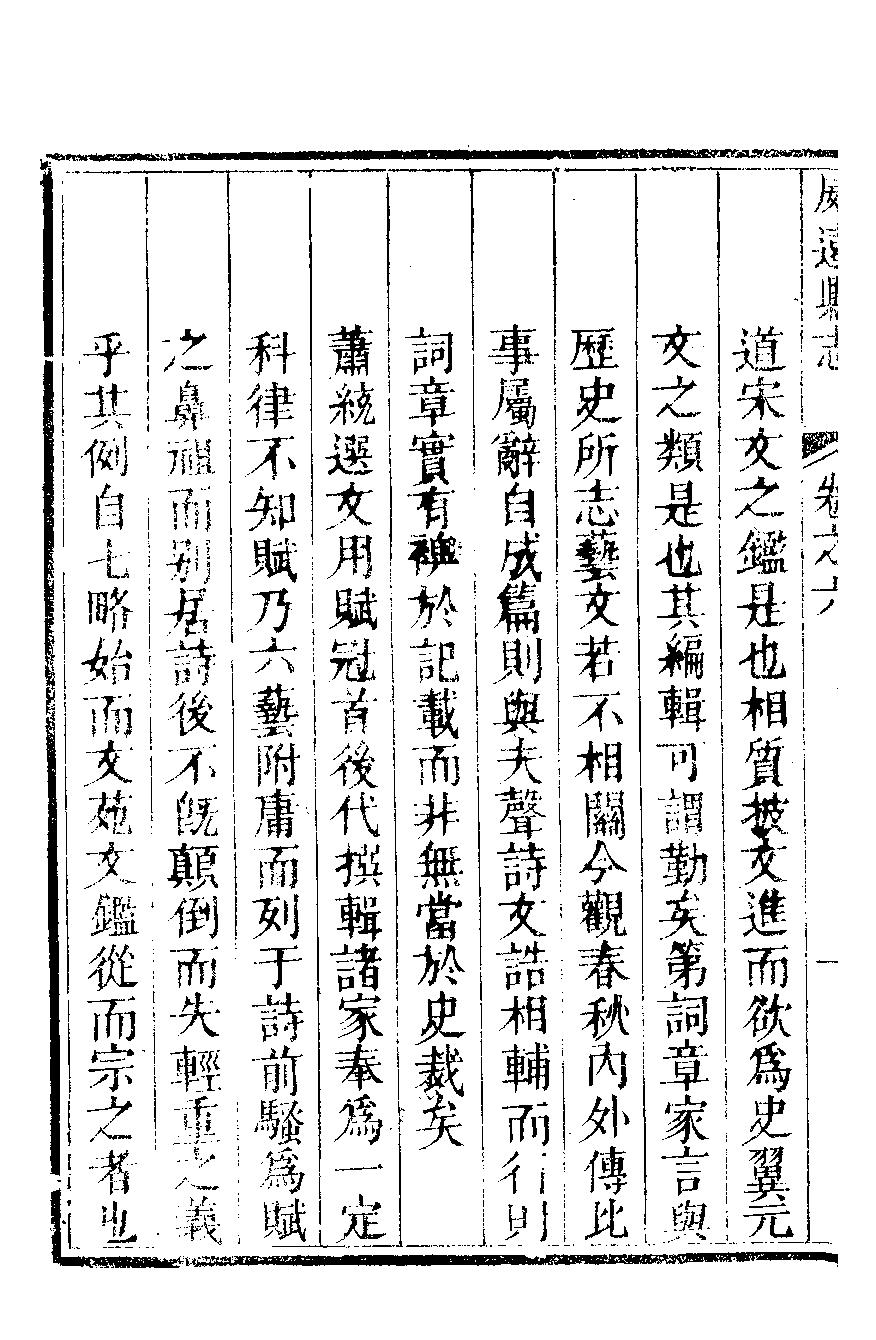 威遠縣志 卷之六 一
道宋文之鑑是也相質披文進而欲為史翼元
文之類是也其編輯可謂勤矣第詞章家言與
歷史所志藝文若不相關今觀春秋內外傳比
事屬辭自成篇則與夫聲詩文誥相輔而行則
詞章實有裨於記載而非無當於史裁矣
蕭統選文用賦冠首後代撰輯諸家奉為一定
科律不知賦乃六藝附庸而列于詩前騷為賦
之鼻祖而別居詩後不旣顛倒而失輕重之義
乎其例自七略始而文苑文鑑從而宗之者也